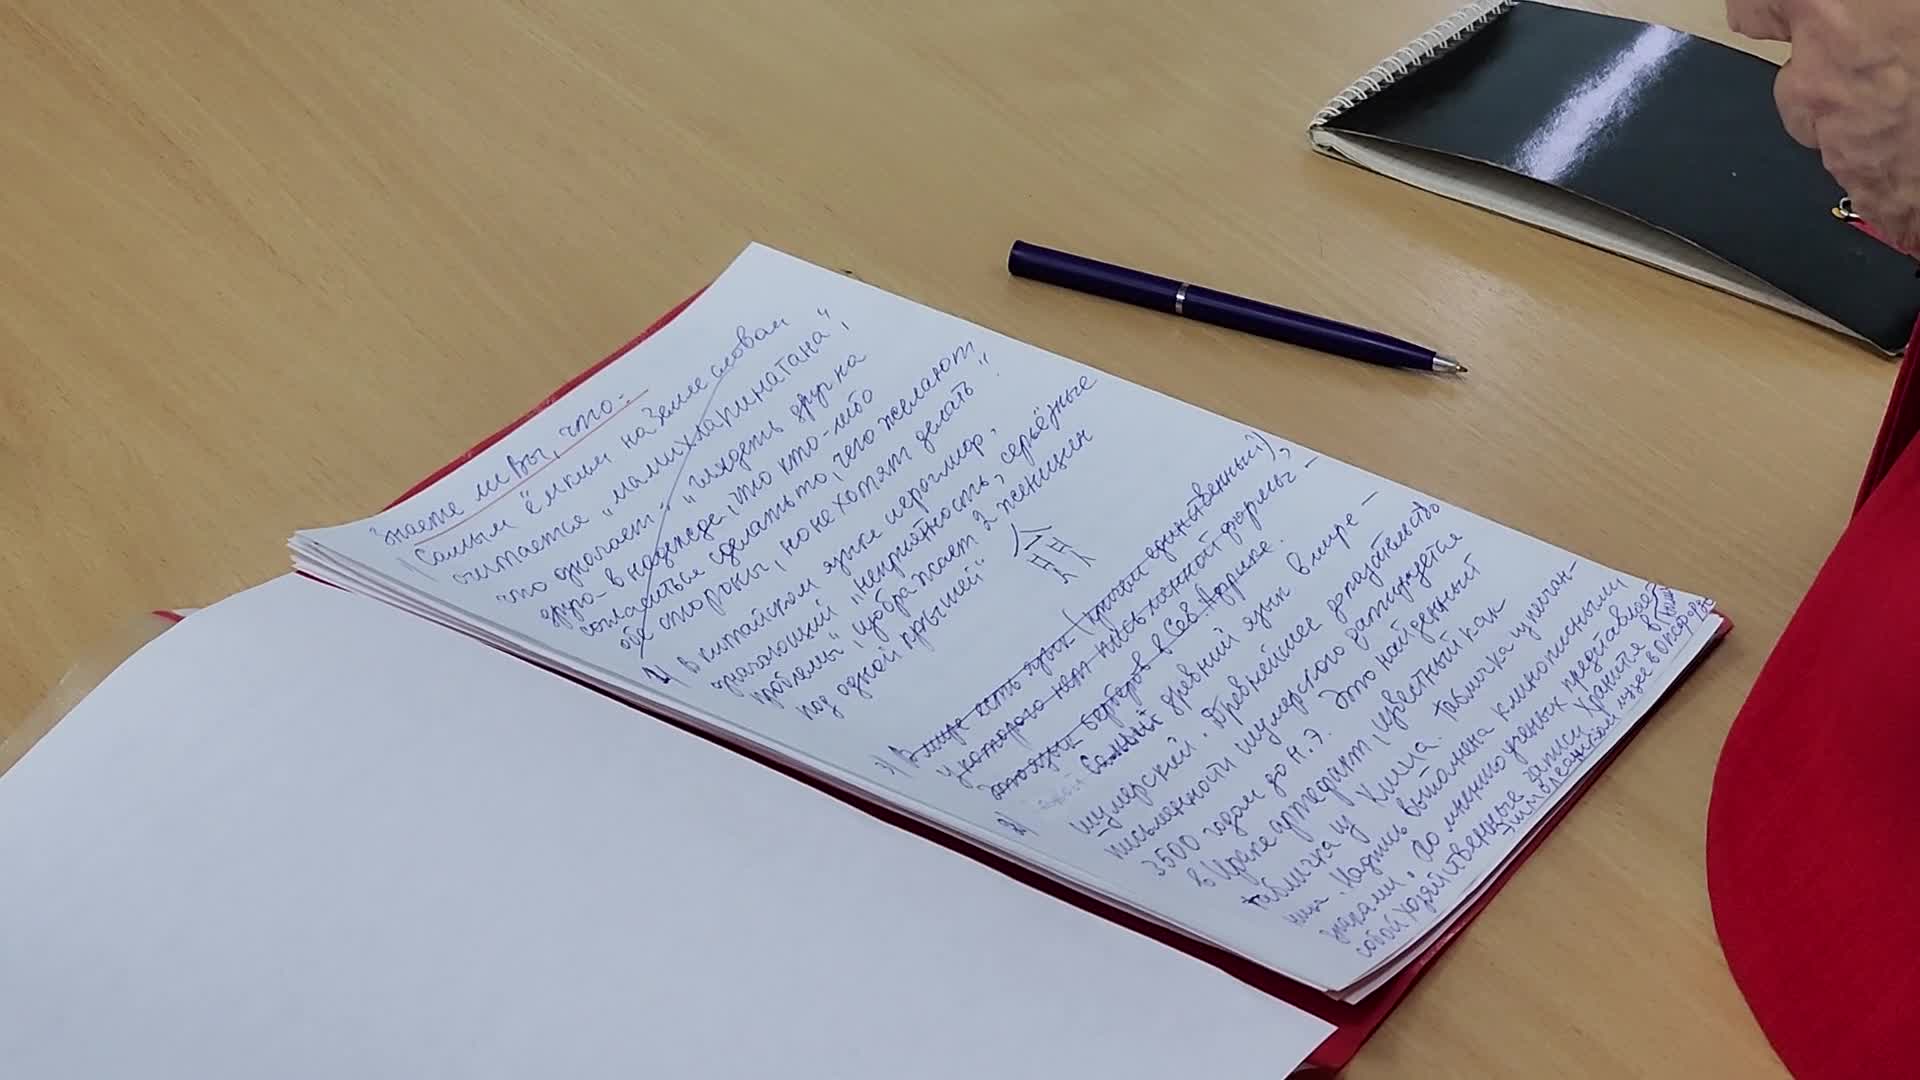 Знаете ли Вы, что...
1) Самым ёмким на Земле словом
считается „мамихлапинатана",
что означает - „глядеть друг на
друга - в надежде, что кто-либо
согласится сделать то, чего желают
обе стороны, но не хотят делать".
2) В китайском языке иероглиф,
означающий „неприятность, серьёзные
проблемы", изображает 2 женщин
под одной крышей"
3) В мире есть язык (причём единственный?),
у которого нет письменной формы -
это язык берберов в Сев. Африке.
Самый древний язык в мире -
шумерский. Древнейшее доказательство
письменности шумерского датируется
3500 годом до н.э. Это найденный
в Ираке артефакт, известный как
табличка из Киша. Табличка из песча-
ника. Надпись выполнена клинописными
знаками. По мнению учёных представляет
собой хозяйственные записи. Хранится в
музее в Оксфорде